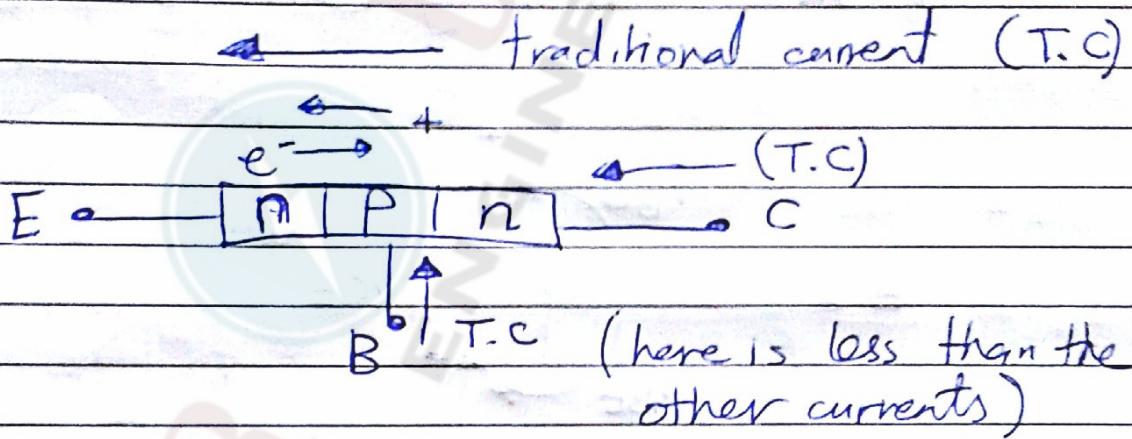 traditional current (T.C)
+
e⁻
(T.C)
E n P n C
B T.C (here is less than the
other currents)
ENGINE